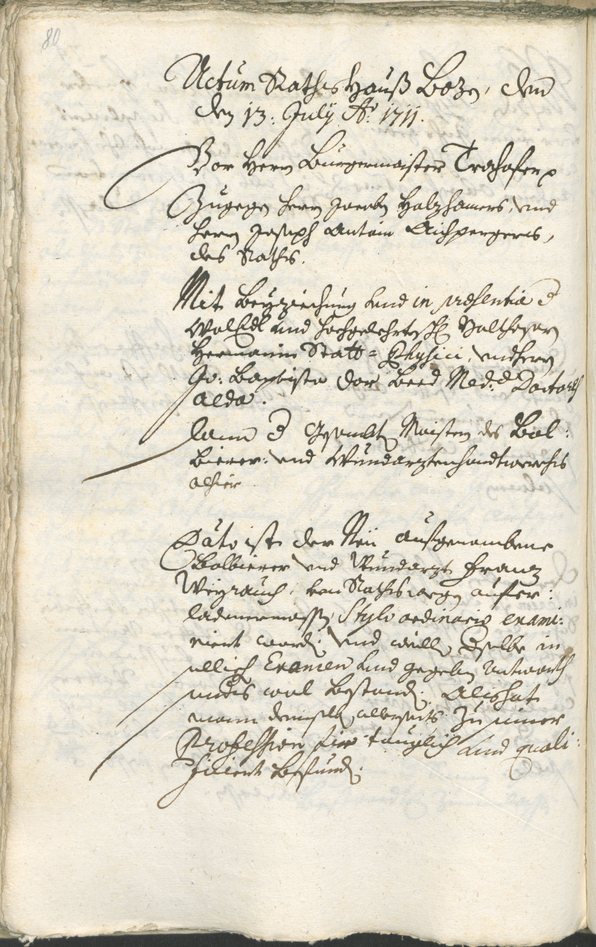 80
Actum Raths Hauß Bozen, den
den 13. July Aō: 1711.
Vor Herrn Burgermaister Trohofer
Zugegen Herrn Jacoben Holzhamers, und
Herrn Joseph Antoni Aichpergers,
des Raths.
Mit beyziechung und in præsentia d
Wolledl und Hochgelehrten H: Balthasarn
Hermanin Statt=Physici, und Herrn
Jo: Baptista beed Med: Doctores
alda.
samt d Gesambten Maister des Bal:
bierer: und Wundarzten handtwerchs
alhier
Dato ist der Neu aufgenambene
Balbierer und Wundarzt Franz
Weyrauch, von Rathswegen aufer:
ladenermassen, Stylo ordinario exami:
niert worden, und weillen Selbe in
sollich Examen und gegeben Antworth
wol bestanden. Als hat
mann demselben allerseits zu seiner
Profession für tauglich und quali:
ficiert befunden.